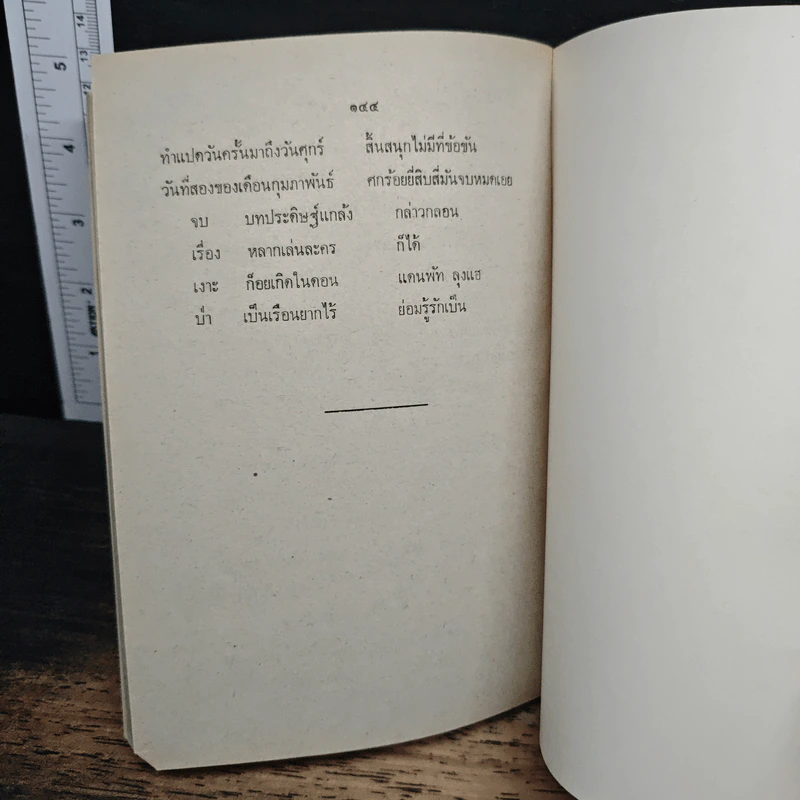 ๑๔๔
ทำแปดวันครั้นมาถึงวันศุกร์ สิ้นสนุกไม่มีที่ข้อขัน
วันที่สองของเดือนกุมภาพันธ์ ศกร้อยยี่สิบสี่มันจบหมดเอย
จบ บทประดิษฐ์แกล้ง กล่าวกลอน
เรื่อง หลากเล่นละคร ก็ได้
เงาะ ก็อยเกิดในดอน แดนพัท ลุงแฮ
ป่า เป็นเรือนยากไร้ ย่อมรู้รักเป็น
5
4
2
1
14
13
12